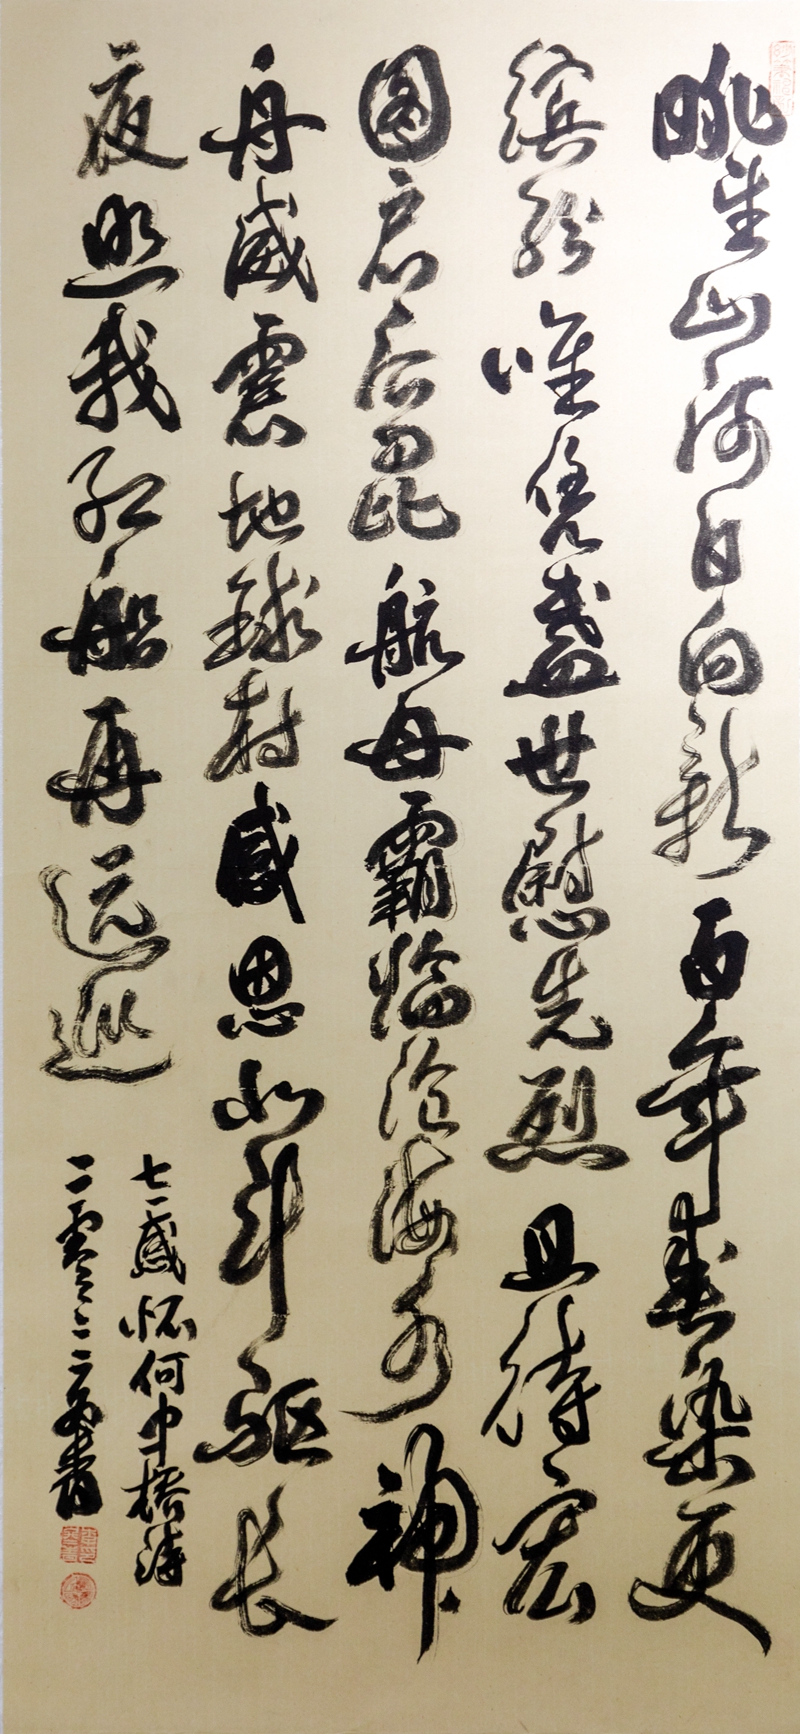 眺望山河日日新百年春染更
缤纷唯凭盖世慰先烈且待宏
图启后昆航母霸临沧海水神
舟威震地球村感恩北斗驱长
夜照我红船再远巡
七一感怀何中桥诗
二零二二年书